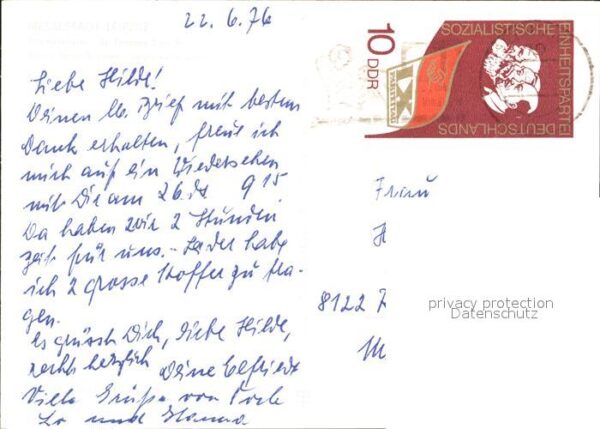 22.6.76
Liebe Hilde!
Deinen lb. Brief mit bestem
Dank erhalten, freue ich
mich auf ein Wiedersehen
mit Dir am 26. ds 9 15
Da haben wir 2 Stunden
Zeit für uns. - Leider habe
ich 2 grosse Koffer zu tra-
gen.
Es grüsst Dich, liebe Hilde,
recht herzlich Deine Elfriede
Viele Grüße von
und Hanna
10 DDR
SOZIALISTISCHE
EINHEITSPARTEI
DEUTSCHLANDS
IX
PARTEITAG
Frau
H
8122
privacy protection
Datenschutz
M